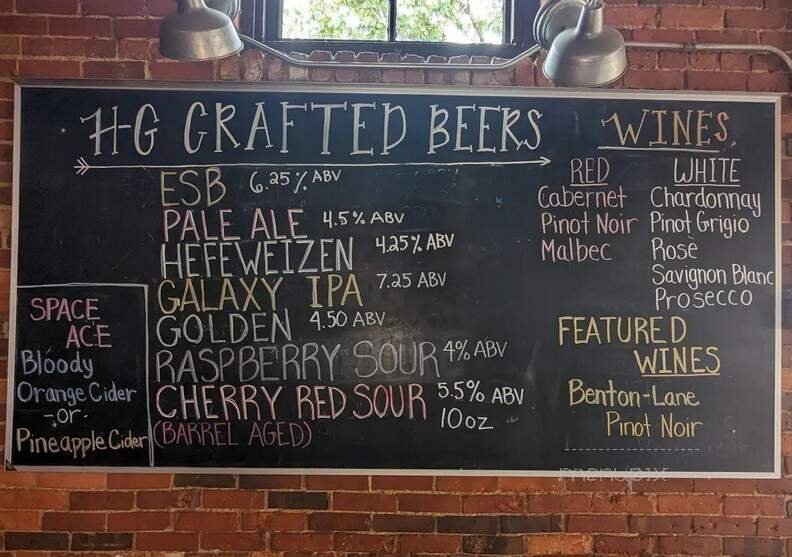 H-G CRAFTED BEERS
ESB 6.25% ABV
PALE ALE 4.5% ABV
HEFEWEIZEN 4.25% ABV
GALAXY IPA 7.25 ABV
GOLDEN 4.50 ABV
RASPBERRY SOUR 4% ABV
CHERRY RED SOUR 5.5% ABV
(BARREL AGED) 10oz
SPACE
ACE
Bloody
Orange Cider
-or-
Pineapple Cider
WINES
RED
Cabernet
Pinot Noir
Malbec
WHITE
Chardonnay
Pinot Grigio
Rosè
Savignon Blanc
Prosecco
FEATURED
WINES
Benton-Lane
Pinot Noir
menupix